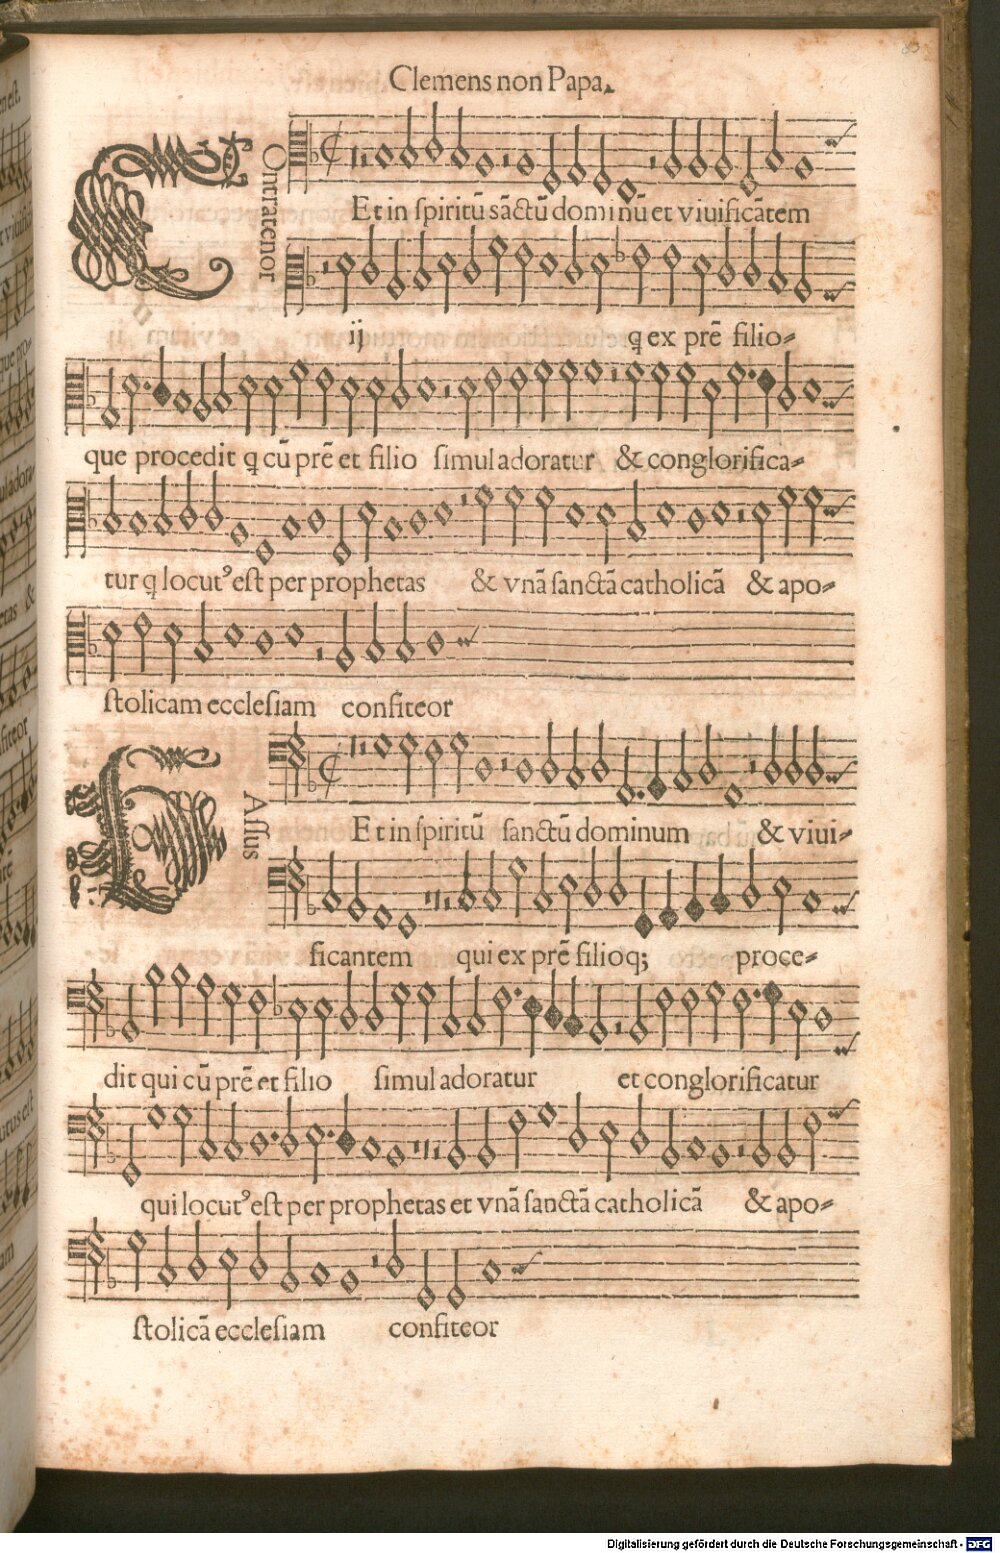 Clemens non Papa.
Contratenor
Et in ſpiritū sāctū dominū et viuificātem
ij q ex prē filio-
que procedit q cū prē et filio ſimul adoratur & conglorifica-
tur q locutꝰ eſt per prophetas & vnā ſanctā catholicā & apo-
ſtolicam eccleſiam confiteor
Baſſus
Et in ſpiritū ſanctū dominum & viui-
ficantem qui ex prē filioq; proce-
dit qui cū prē et filio ſimul adoratur et conglorificatur
qui locutꝰ eſt per prophetas et vnā ſanctā catholicā & apo-
ſtolicā eccleſiam confiteor
Digitalisierung gefördert durch die Deutsche Forschungsgemeinschaft - DFG